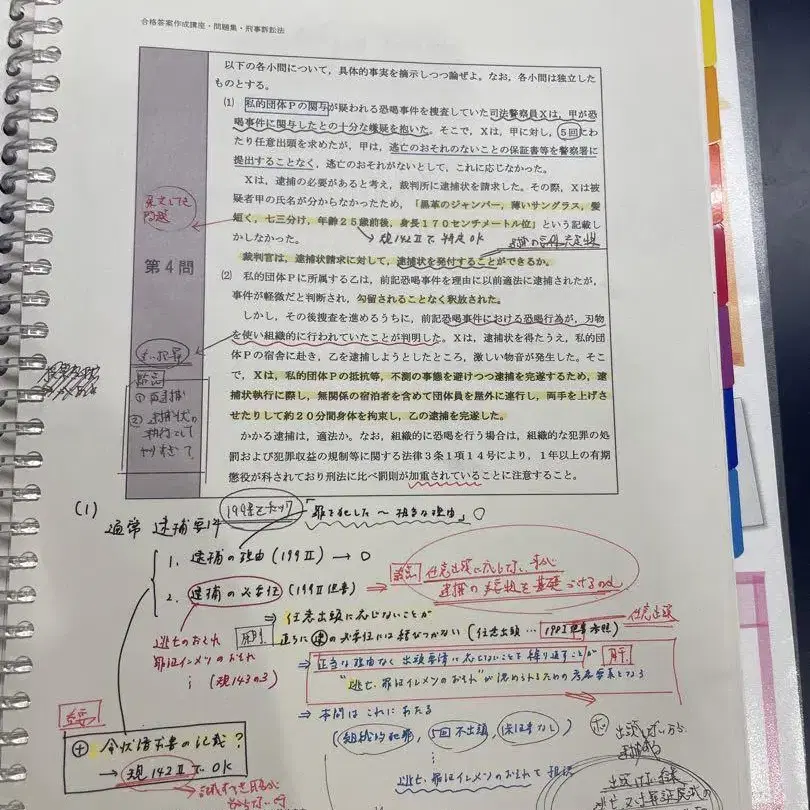 合格答案作成講座・問題集・刑事訴訟法
以下の各小問について，具体的事実を摘示しつつ論ぜよ。なお，各小問は独立した
ものとする。
(1) 私的団体Ｐの関与が疑われる恐喝事件を捜査していた司法警察員Ｘは，甲が恐
喝事件に関与したとの十分な嫌疑を抱いた。そこで，Ｘは，甲に対し，５回にわ
たり任意出頭を求めたが，甲は，逃亡のおそれのないことの保証書等を警察署に
提出することなく，逃亡のおそれがないとして，これに応じなかった。
Ｘは，逮捕の必要があると考え，裁判所に逮捕状を請求した。その際，Ｘは被
疑者甲の氏名が分からなかったため，「黒革のジャンパー，薄いサングラス，髪
短く，七三分け，年齢２５歳前後，身長１７０センチメートル位」という記載し
かしなかった。
→ 規142Ⅱで特定OK
裁判官は，逮捕状請求に対して，逮捕状を発付することができるか。
第４問
(2) 私的団体Ｐに所属する乙は，前記恐喝事件を理由に以前適法に逮捕されたが，
事件が軽微だと判断され，勾留されることなく釈放された。
しかし，その後捜査を進めるうちに，前記恐喝事件における恐喝行為が，刃物
を使い組織的に行われていたことが判明した。Ｘは，逮捕状を得たうえ，私的団
体Ｐの宿舎に赴き，乙を逮捕しようとしたところ，激しい物音が発生した。そこ
で，Ｘは，私的団体Ｐの抵抗等，不測の事態を避けつつ逮捕を完遂するため，逮
捕状執行に際し，無関係の宿泊者を含めて団体員を屋外に連行し，両手を上げさ
せたりして約２０分間身体を拘束し，乙の逮捕を完遂した。
かかる逮捕は，適法か。なお，組織的に恐喝を行う場合は，組織的な犯罪の処
罰および犯罪収益の規制等に関する法律３条１項１４号により，１年以上の有期
懲役が科されており刑法に比べ罰則が加重されていることに注意すること。
① 再逮捕
② 逮捕状の
執行として
やりすぎ？
(1)
通常逮捕要件
「罪を犯した〜相当な理由」○
1. 逮捕の理由 (199Ⅱ) → ○
2. 逮捕の必要性 (199Ⅱ但書)
⇒ 任意出頭に応じない事が
逮捕の必要性を基礎づけるのか
⇒ 任意出頭に応じないことが
直ちに逮の必要性には結びつかない (任意出頭… 199Ⅰ但書参照)
任意出頭
逃亡のおそれ
罪証インメツのおそれ
(規143の3)
⇒ 正当な理由なく出頭要請に応じないことを繰り返すことが
"逃亡、罪証インメツのおそれ"が認められるための考慮要素となる
⇒ 本問はこれにあたる
(組織的犯罪, 5回不出頭, 保証書なし)
逃亡、罪証インメツのおそれで
⊕ 令状請求書の記載？
→ 規142ⅡでOK